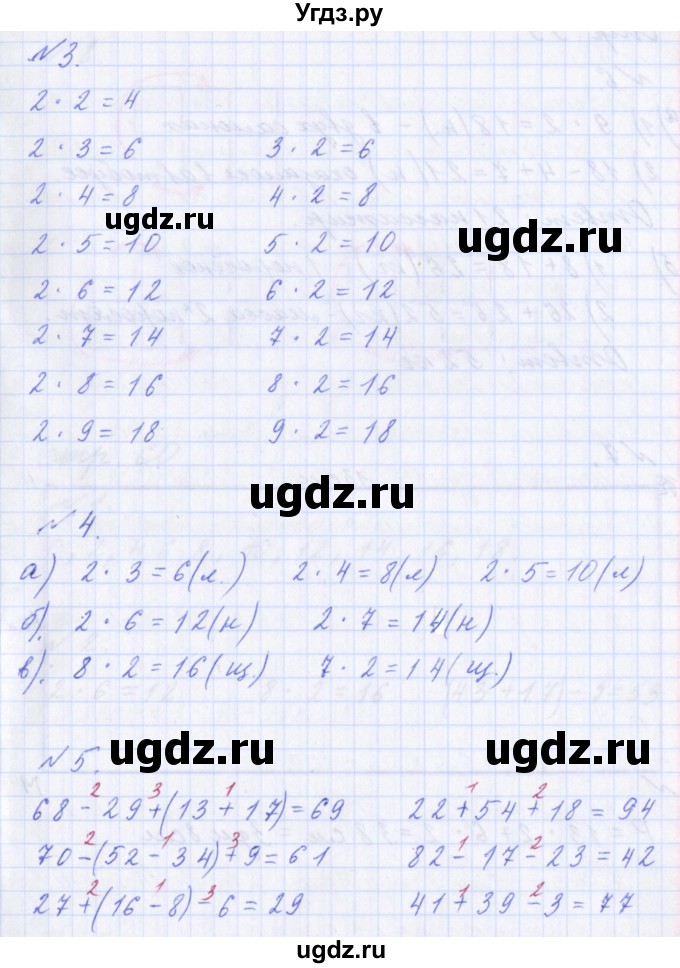 Угдз.ру
№3.
2 · 2 = 4
2 · 3 = 6 3 · 2 = 6
2 · 4 = 8 4 · 2 = 8
ugdz.ru
2 · 5 = 10 5 · 2 = 10
ugdz.ru
2 · 6 = 12 6 · 2 = 12
2 · 7 = 14 7 · 2 = 14
2 · 8 = 16 8 · 2 = 16
2 · 9 = 18 9 · 2 = 18
ugdz.ru
№4.
а) 2 · 3 = 6(л.) 2 · 4 = 8(л) 2 · 5 = 10(л)
б). 2 · 6 = 12(н) 2 · 7 = 14(н)
в). 8 · 2 = 16(щ.) 7 · 2 = 14(щ.)
ugdz.ru ugdz.ru
№5.
2 3 1 1 2
68 - 29 + (13 + 17) = 69 22 + 54 + 18 = 94
2 1 3 1 2
70 - (52 - 34) + 9 = 61 82 - 17 - 23 = 42
2 1 3 1 2
27 + (16 - 8) - 6 = 29 41 + 39 - 3 = 77
ugdz.ru